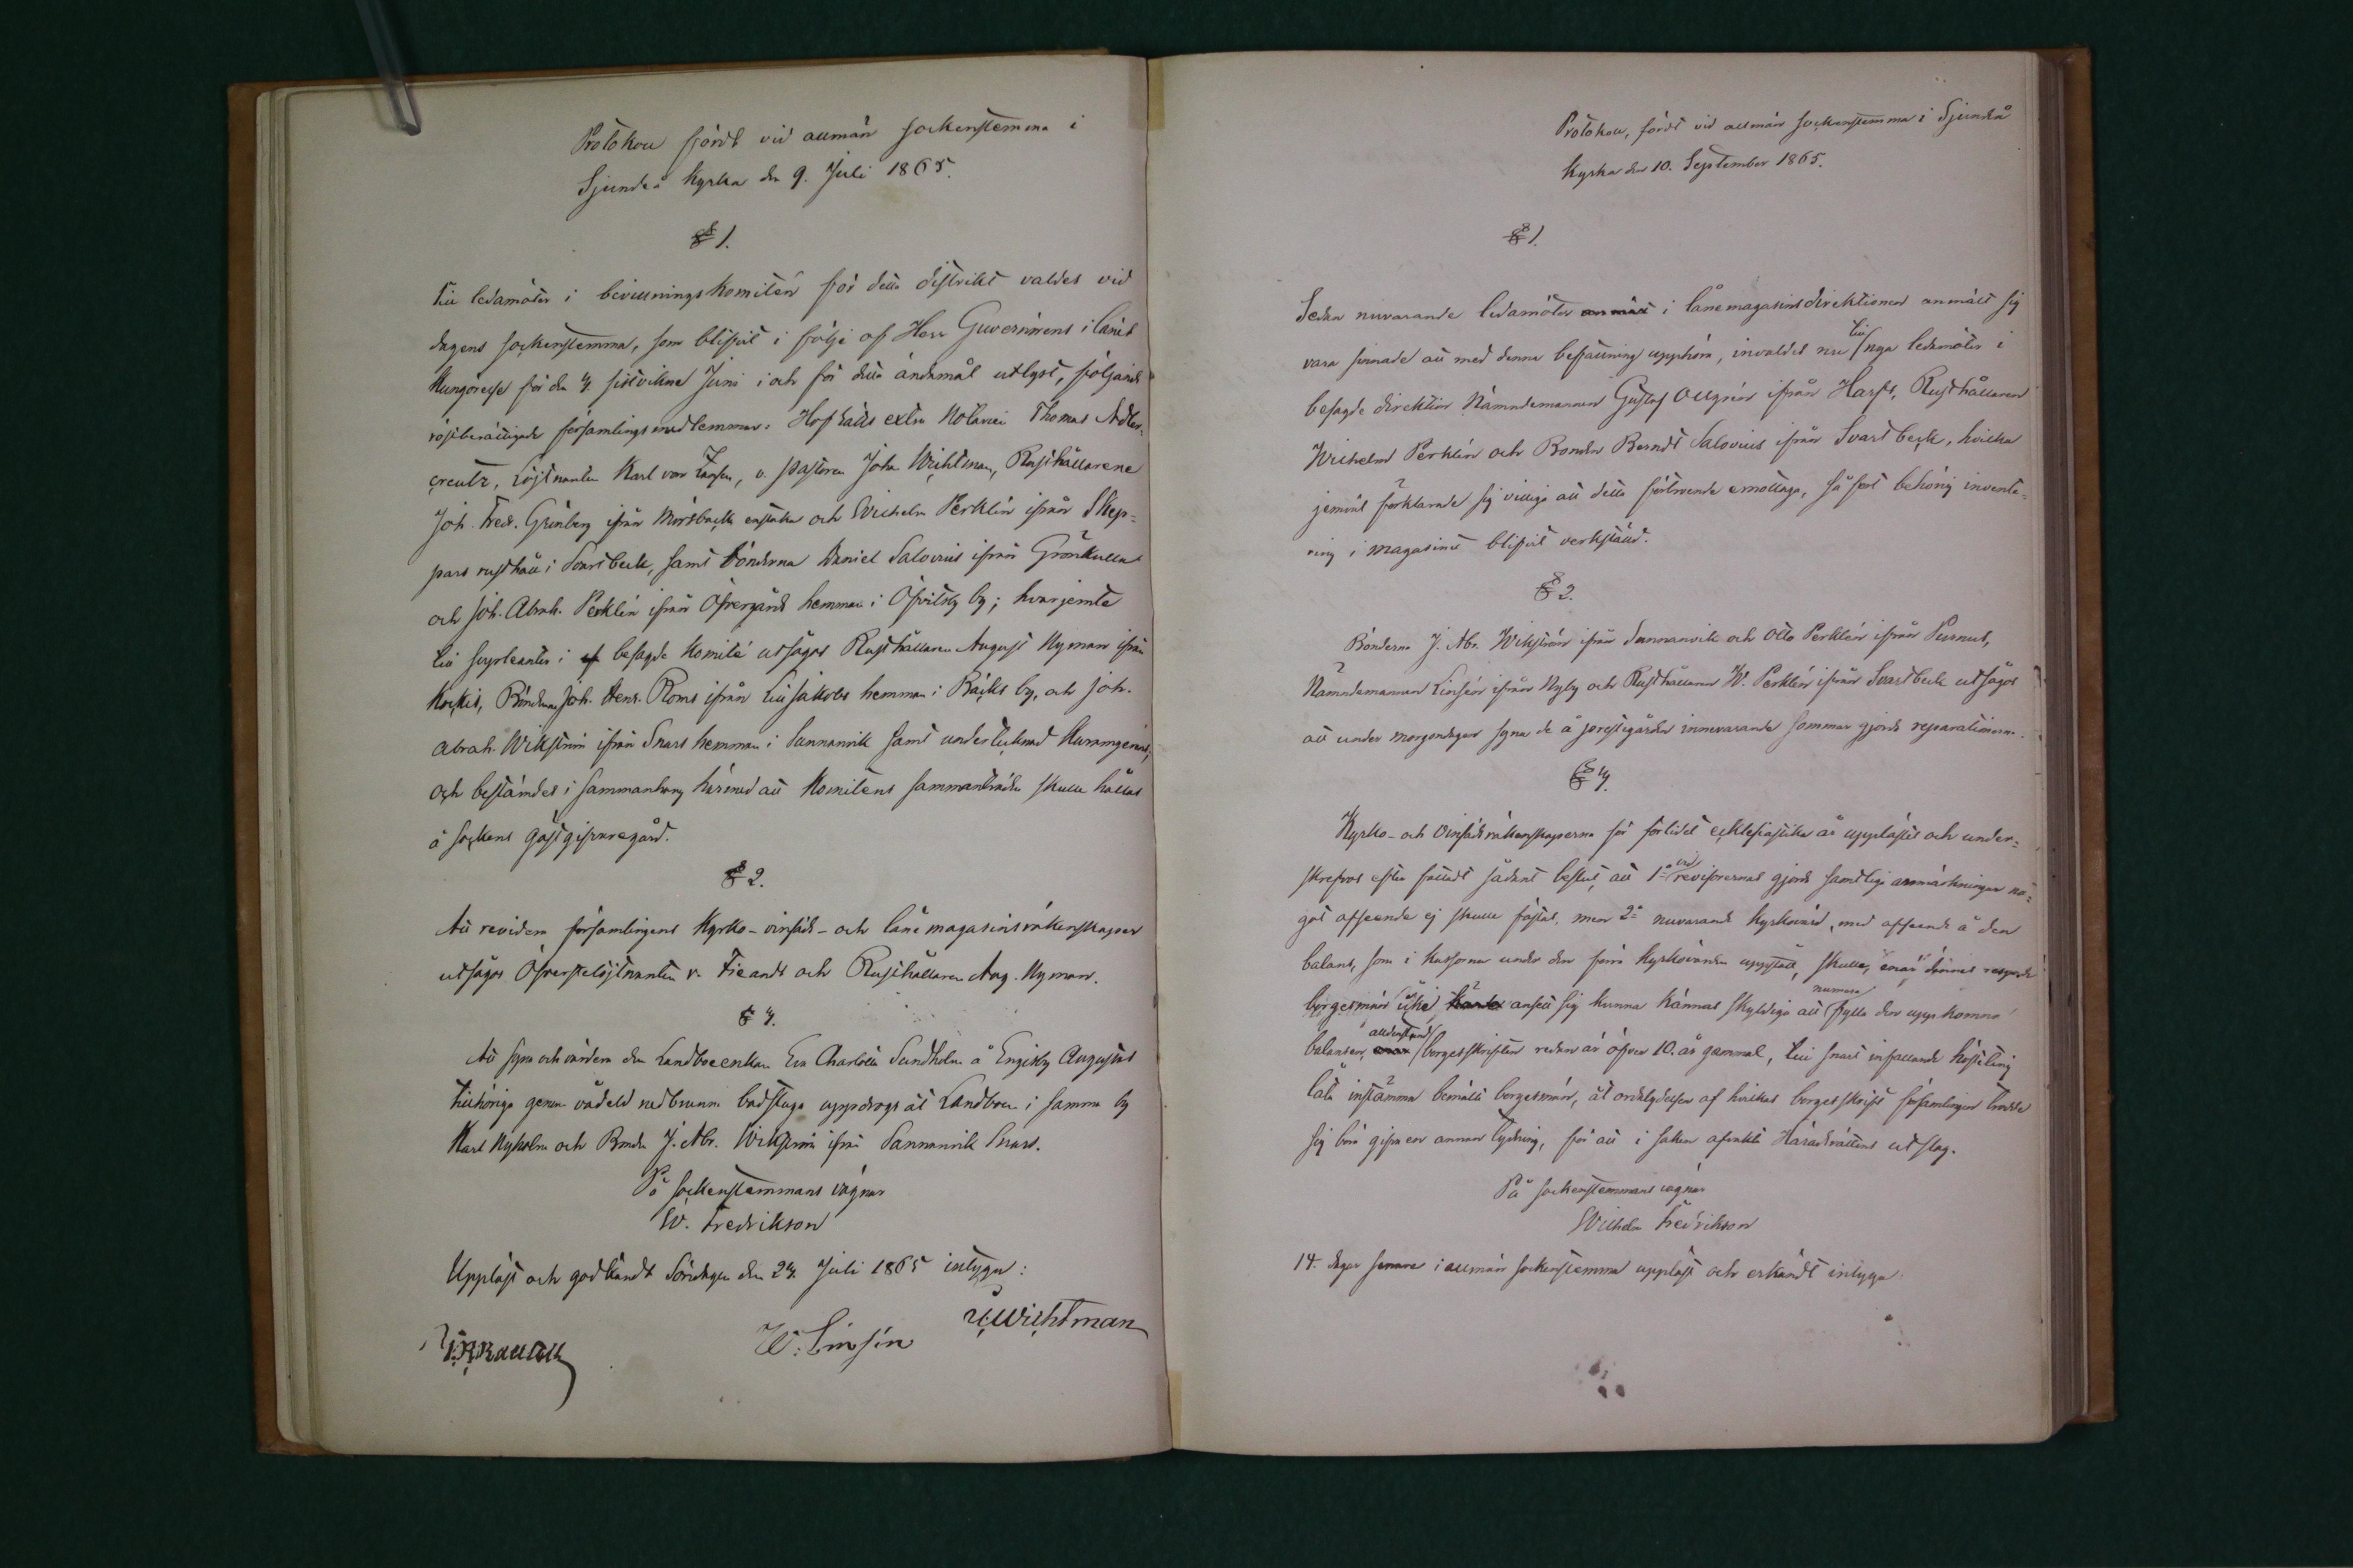 Protokoll fördt vid allmän sockenstemma i
Sjundeå kyrka den 9. Juli 1865.
§ 1.
Till ledamöter i bevillningskomitén för detta distrikt valdes vid
dagens sockenstemma, som blifvit i följe af Herr Guvernörens i länet
kungörelse för den 3 sistvikne Juni i och för detta ändamål utlyst, följande
röstberättigade församlingsmedlemmar: Hofrätts extra Notarien Thomas Adler-
creutz, Löjtnanten Karl von, v. pastorn Johan Wichtman, Rusthållarene
Joh. Fredr. Grönberg ifrån Mörsbacka enstaka och Wilhelm Perklén ifrån Skep-
pars rusthåll i Svartbeck, samt bönderna Daniel Salovius ifrån Grönkulla
och Joh. Abrah. Perklén ifrån Öfvergårds hemman i Öfvitsby by; hvarjemte
till suppleanter i af besagde komité utsågos Rusthållaren August Nyman ifrån
Kockis, Bönderne Joh. Henr. Roms ifrån Lill Jakobs hemman i Bäcks by, och Joh.
Abrah. Wikström ifrån Snars hemman i Sunnanvik samt undertecknad
och bestämdes i sammanhang härmed att komiténs sammanträde skulle hållas
å sockens gästgifvaregård.
§ 2.
Att revidera församlingens kyrko- vinfäds- och lånemagasinsräkenskaper
utsågos Öfverstelöjtnanten v. Fieandt och Rusthållaren Aug. Nyman.
§ 3.
Att syna och värdera den Landboenkan Eva Charlotta Sundholm å Engisby Augustas
tillhöriga genom vådeld nedbrunna badstuga uppdrogs åt Landboen i samma by
Karl Nyholm och Bonden J. Abr. Wikström ifrån Sunnanvik Snars.
På sockenstemmans vägnar
W. Fredrikson
Uppläst och godkändt Söndagen den 23 Juli 1865 intyga:
W: Linsén Wichtman
Protokoll, fördt vid allmän sockenstemma i Sjundeå
kyrka den 10. September 1865.
§ 1.
Sedan nuvarande ledamöter anmält i lånemagasinsdirektionen anmält sig
vara sinnade att med denna befattning upphöra, invaldes nu till nya ledamöter i
besagde direktion Nämndemannen Gustaf Allgrén ifrån Harfs, Rusthållaren
Wilhelm Perklén och Bonden Berndt Salovius ifrån Svartbeck, hvilka
jemväl förklarade sig villiga att detta förtroende emottaga, så fort behörig invente-
ring i magasinet blifvit verkställd.
§ 2.
Bönderna J. Abr. Wikström ifrån Sunnanvik och Otto Perklén ifrån Purnus,
Nämndemannen Linsén ifrån Nyby och Rusthållaren W. Perklén ifrån Svartbeck utsågos
att under morgondagen syna de å prestgården innevarande sommar gjorda reparationerna.
§ 3.
Kyrko- och Vinfädsräkenskaperna för förlidet ecklesiastika år upplästes och under-
skrefvos efter fattadt sådant beslut, att 1:o vid revisorernas gjorda samtliga anmärkningar nå-
got afseende ej skulle fästas, men 2:o nuvarande kyrkovärd, med afseende å den
balans, som i kassorna under den förra kyrkovärden uppstått, skulle, enär dennes
borgesmän icke ansett sig kunna kännas skyldiga att numera fylla den uppkomna
balansen, alldenstund borgesskriften redan är öfver 10. år gammal, till snart infallande hösteting
låta instämma bemälte borgesmän, åt ordalydelsen af hvilkas borgesskrift församlingen trodde
sig böra gifva en annan tydning, för att i saken afvakta Häradsrättens utslag.
På sockenstemmans vägnar
Wilhelm Fredrikson
14. dagar senare i allmän sockenstemma uppläst och erkändt intyga